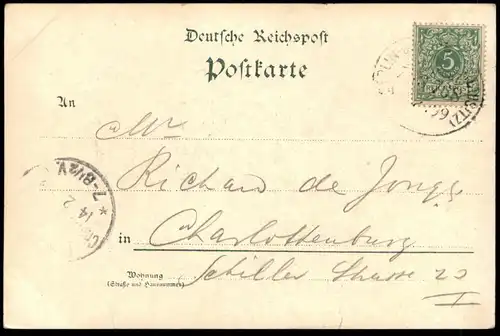 Deutsche Reichspost
Postkarte
5
An
Mr
Richard de Jonge
in Charlottenburg
Wohnung
(Straße und Hausnummer)
Schiller Strasse 20
I
* 14 2
7-8½V.
99